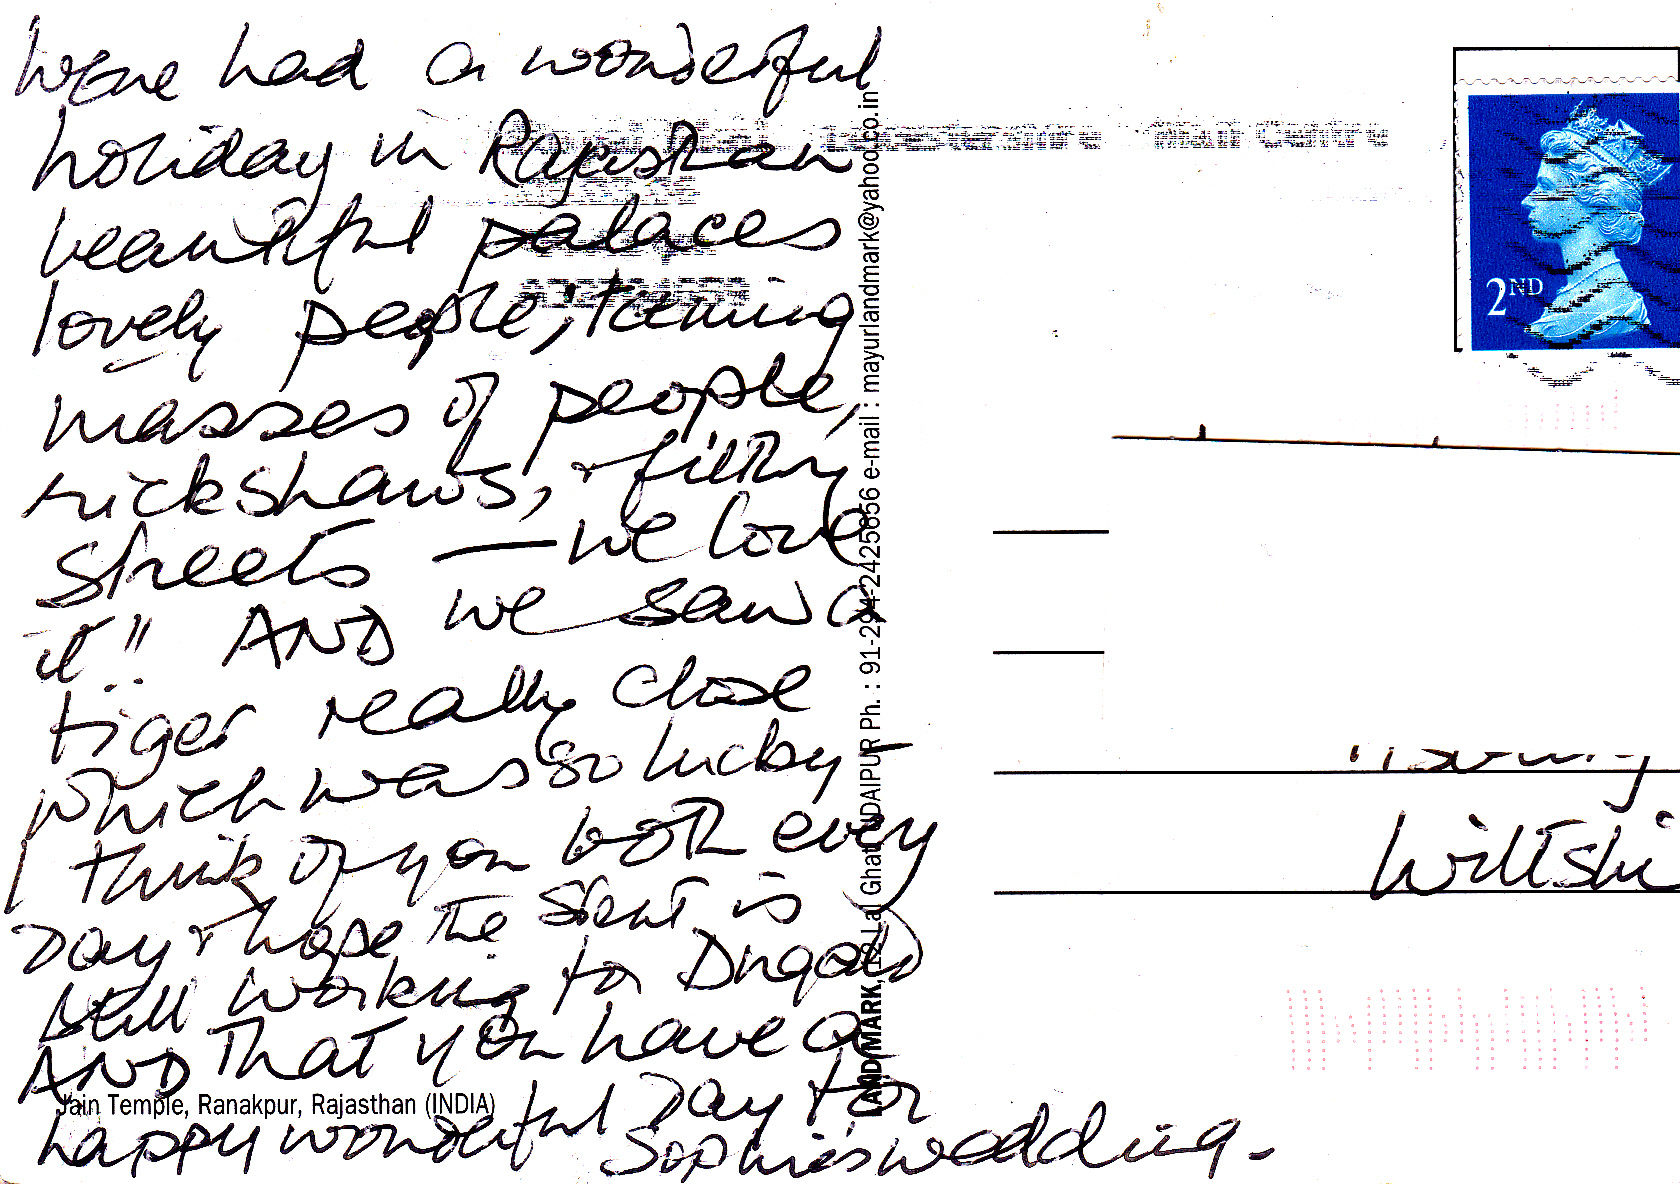 We've had a wonderful
holiday in Rajasthan
beautiful palaces
lovely people, teeming
masses of people,
rickshaws, + filthy
streets — we love
it!! AND we saw a
tiger really close
which was so lucky –
I think of you both every
Day + hope the stent is
still working for Dugald
AND that you have a
happy wonderful Day for
Sophie's wedding.
Jain Temple, Ranakpur, Rajasthan (INDIA)
LANDMARK, Lal Ghat UDAIPUR Ph. : 91-294-2425656 e-mail : mayurlandmark@yahoo.co.in
Mail Centre
2ND
Wiltshi